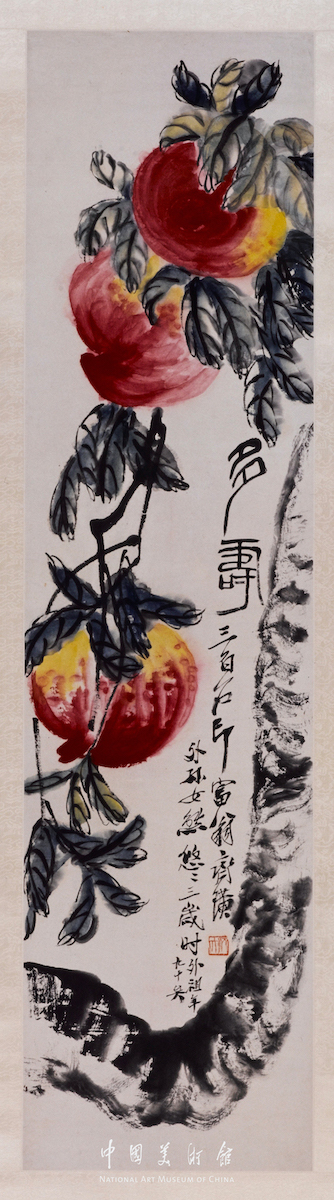 多壽
三百石印富翁齊璜
外孫女熊悠悠三歲时外祖年
九十矣
中國美術館
NATIONAL ART MUSEUM OF CHINA